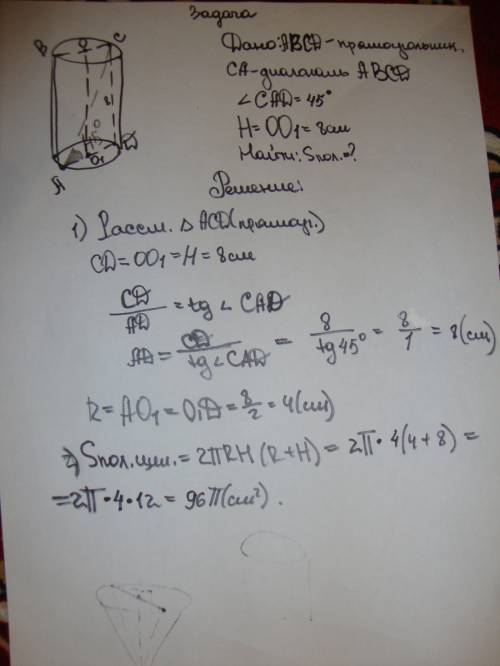 Задача
Дано: ABCD - прямоугольник,
CA - диагональ ABCD
∠CAD = 45°
H = OO₁ = 8см
Найти: Sпол. = ?
Решение:
B O C
8
45°
A O₁ D
1) Рассм. △ ACD (прямоуг.)
CD = OO₁ = H = 8см
CD/AD = tg ∠CAD
AD = CD/tg∠CAD = 8/tg45° = 8/1 = 8(см)
R = AO₁ = O₁D = 8/2 = 4(см)
2) Sпол.цил. = 2πRH(R+H) = 2π·4(4+8) =
= 2π·4·12 = 96π(см²).